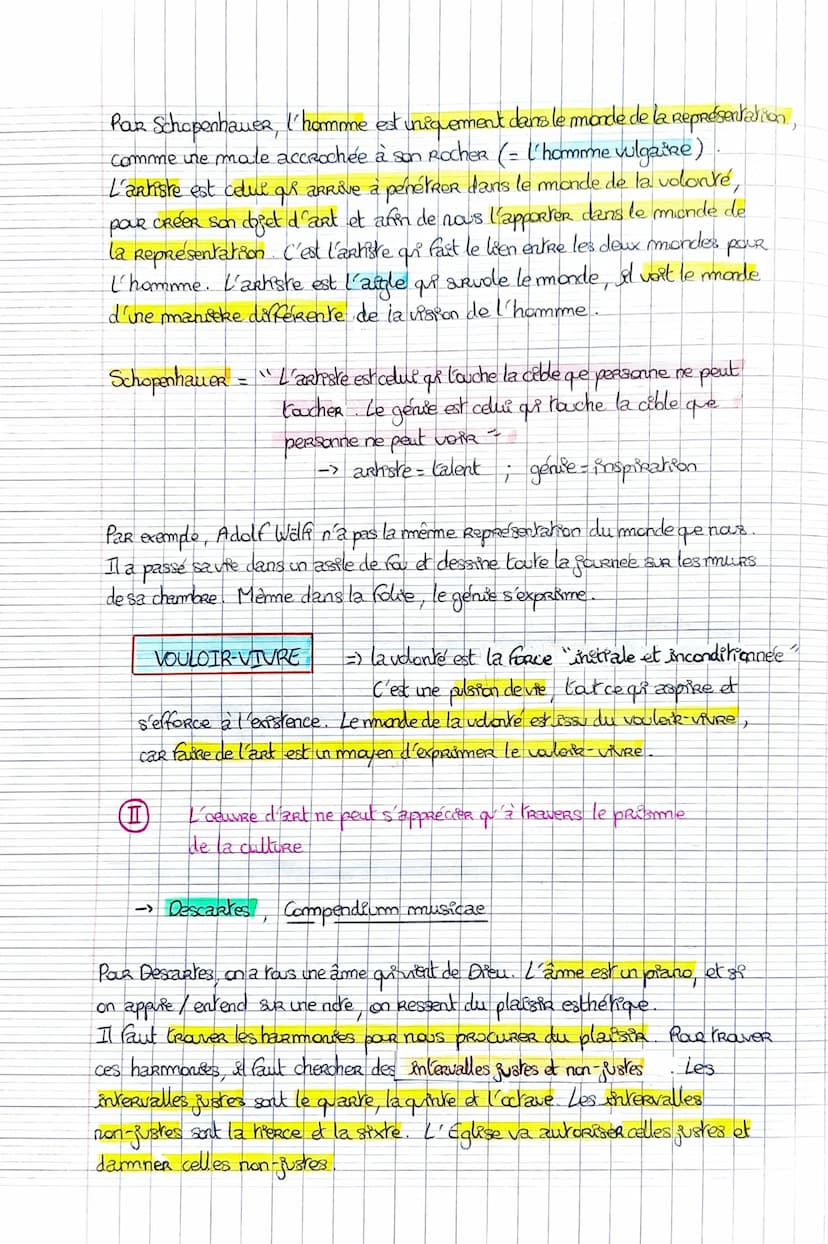 Pour Schopenhauer, l'homme est uniquement dans le monde de la représentation,
comme une moule accrochée à son rocher (= l'homme vulgaire).
L'artiste est celui qui arrive à pénétrer dans le monde de la volonté,
pour créer son objet d'art et afin de nous l'apporter dans le monde de
la représentation. C'est l'artiste qui fait le lien entre les deux mondes pour
l'homme. L'artiste est l'aigle qui survole le monde, il voit le monde
d'une manière différente de la vision de l'homme.
Schopenhauer = "L'artiste est celui qui touche la cible que personne ne peut
toucher. Le génie est celui qui touche la cible que
personne ne peut voir"
-> artiste = talent ; génie = inspiration
Par exemple, Adolf Wölfi n'a pas la même représentation du monde que nous.
Il a passé sa vie dans un asile de fou et dessine toute la journée sur les murs
de sa chambre. Même dans la folie, le génie s'exprime.
VOULOIR-VIVRE => la volonté est la force "initiale et inconditionnée"
C'est une pulsion de vie, tout ce qui aspire et
s'efforce à l'existence. Le monde de la volonté est issu du vouloir-vivre,
car faire de l'art est un moyen d'exprimer le vouloir-vivre.
II L'oeuvre d'art ne peut s'apprécier qu'à travers le prisme
de la culture
-> Descartes, Compendium musicae
Pour Descartes, on a tous une âme qui vient de Dieu. L'âme est un piano, et si
on appuie / entend sur une note, on ressent du plaisir esthétique.
Il faut trouver les harmonies pour nous procurer du plaisir. Pour trouver
ces harmonies, il faut chercher des intervalles justes et non-justes. Les
intervalles justes sont le quarte, la quinte et l'octave. Les intervalles
non-justes sont la tierce et la sixte. L'Église va autoriser celles justes et
damner celles non-justes.